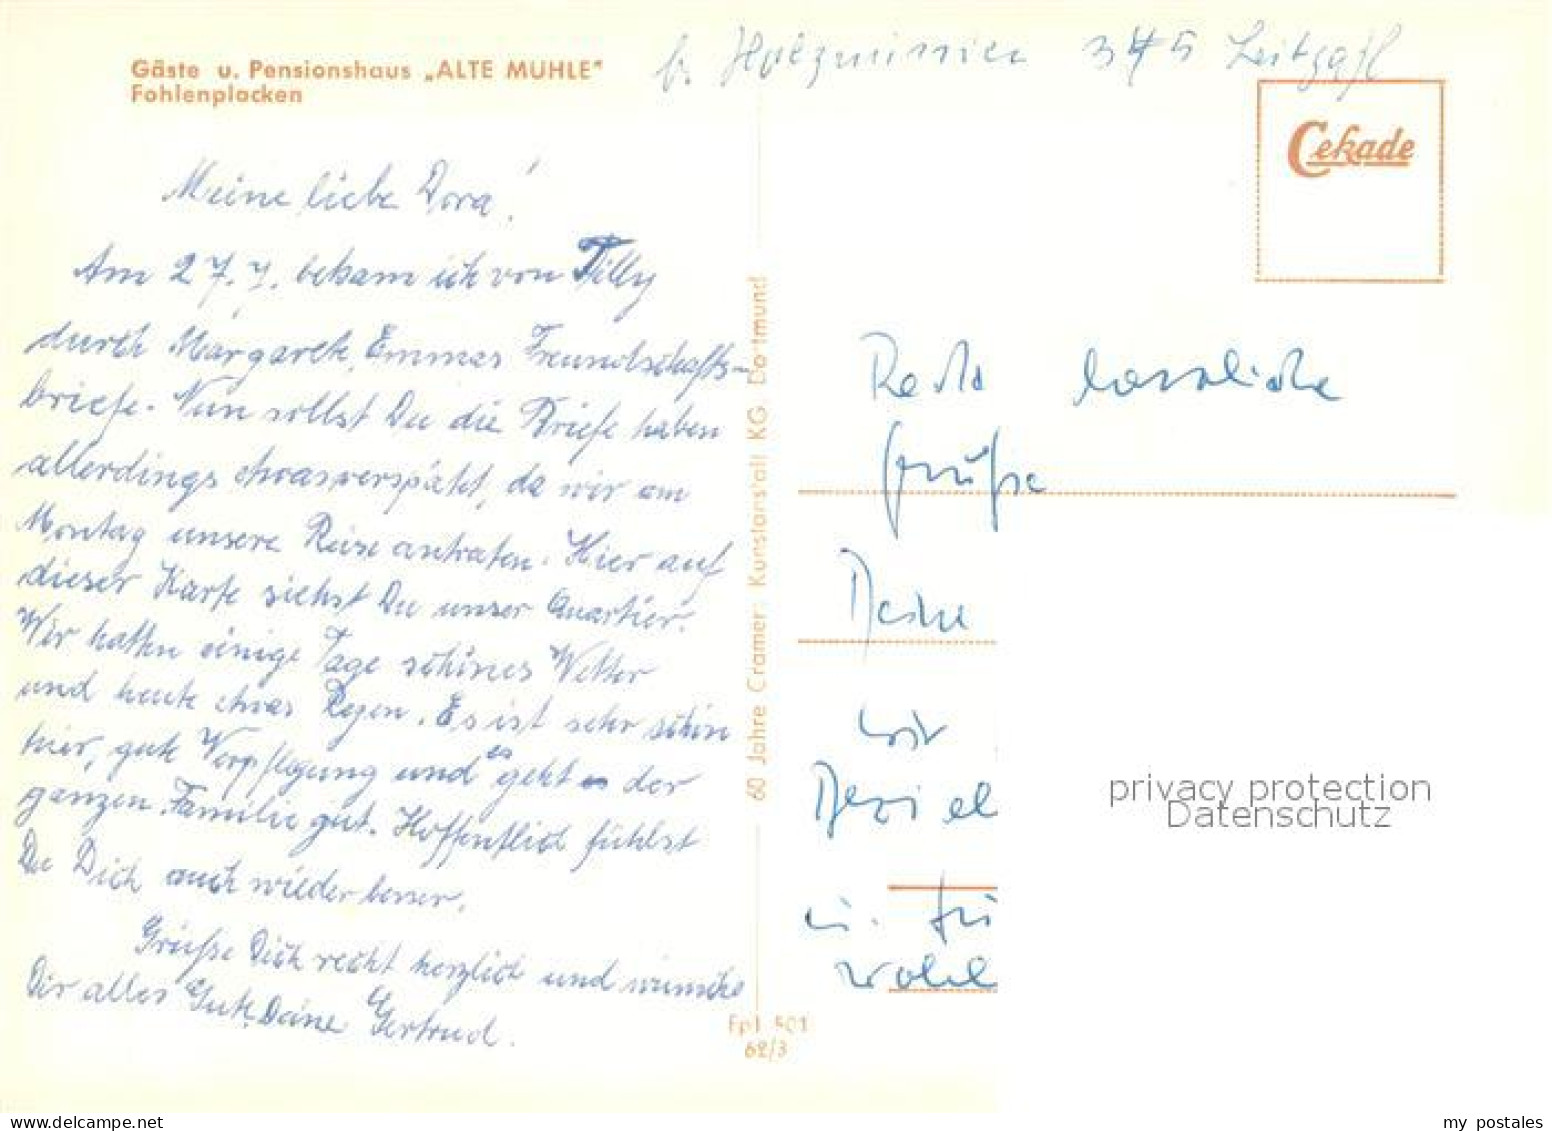 Gäste u. Pensionshaus „ALTE MÜHLE"
Fohlenplacken
b. Holzminden 345 Leitzahl
Cekade
Meine liebe Dora!
Am 27.7. bekam ich von Tilly
durch Margarete, Emmas Freundschafts-
briefe. Nun sollst Du die Briefe haben
allerdings etwas verspätet, da wir am
Montag unsere Reise antraten. Hier auf
dieser Karte siehst Du unser Quartier.
Wir hatten einige Tage schönes Wetter
und heute etwas Regen. Es ist sehr schön
hier, gute Verpflegung und es geht der
ganzen Familie gut. Hoffentlich fühlst
Du Dich auch wieder besser.
Grüße Dich recht herzlich und wünsche
Dir alles Gute, Deine Gertrud.
60 Jahre Cramer: Kunstanstalt KG Dortmund
Fpl 501
62/3
Recht herzliche
Grüße
Deine
wir
wohl
privacy protection
Datenschutz
my postales